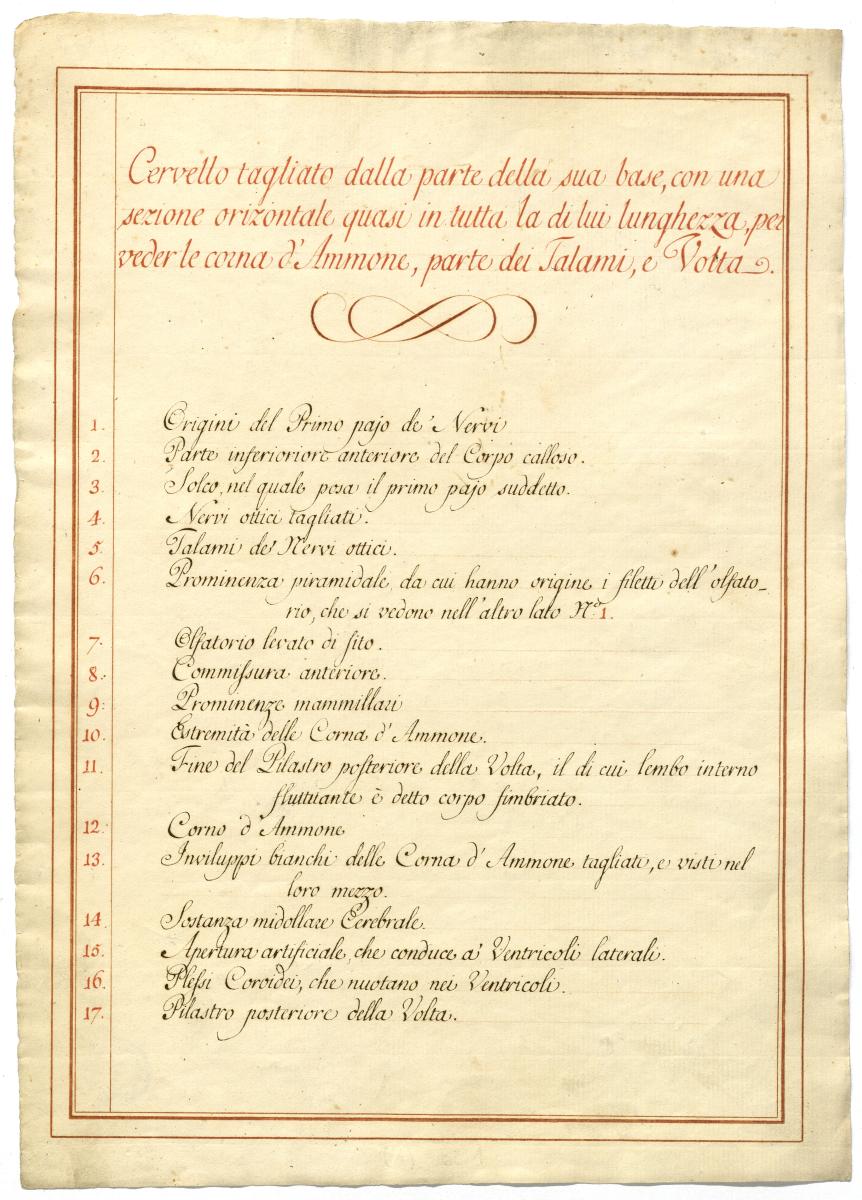 Cervello tagliato dalla parte della sua base, con una
sezione orizontale quasi in tutta la di lui lunghezza, per
veder le corna d'Ammone, parte dei Talami, e Volta.
1. Origini del Primo pajo de' Nervi
2. Parte inferioriore anteriore del Corpo calloso.
3. Solco, nel quale posa il primo pajo suddetto.
4. Nervi ottici tagliati.
5. Talami de' Nervi ottici.
6. Prominenza piramidale, da cui hanno origine i filetti dell'olfato-
rio, che si vedono nell'altro lato N.º 1.
7. Olfatorio levato di sito.
8. Commiſsura anteriore.
9. Prominenze mammillari
10. Estremità delle Corna d'Ammone.
11. Fine del Pilastro posteriore della Volta, il di cui lembo interno
fluttuante è detto corpo fimbriato.
12. Corno d'Ammone
13. Inviluppi bianchi delle Corna d'Ammone tagliati, e visti nel
loro mezzo.
14. Sostanza midollare Cerebrale.
15. Apertura artificiale, che conduce a' Ventricoli laterali.
16. Pleſsi Coroidei, che nuotano nei Ventricoli.
17. Pilastro posteriore della Volta.